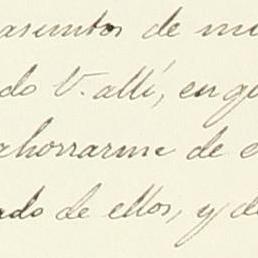 asuntos de me
do V. allí, en qu
ahorrarme de e
ado de ellos, y de